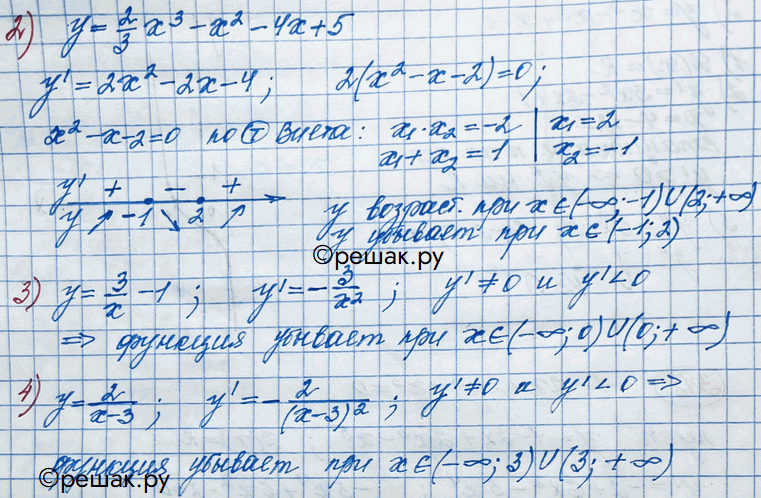 2) y = 2/3 x³ - x² - 4x + 5
y' = 2x² - 2x - 4; 2(x² - x - 2) = 0;
x² - x - 2 = 0 по Ⓣ Виета: x₁ · x₂ = -2 | x₁ = 2
x₁ + x₂ = 1 | x₂ = -1
y' + - +
y ↗ -1 ↘ 2 ↗
y возраст. при x ∈ (-∞; -1) ∪ (2; +∞)
y убывает при x ∈ (-1; 2)
©решак.ру
3) y = 3/x - 1; y' = - 3/x²; y' ≠ 0 и y' < 0
=> функция убывает при x ∈ (-∞; 0) ∪ (0; +∞)
4) y = 2/(x-3); y' = - 2/(x-3)²; y' ≠ 0 и y' < 0 =>
функция убывает при x ∈ (-∞; 3) ∪ (3; +∞)
©решак.ру